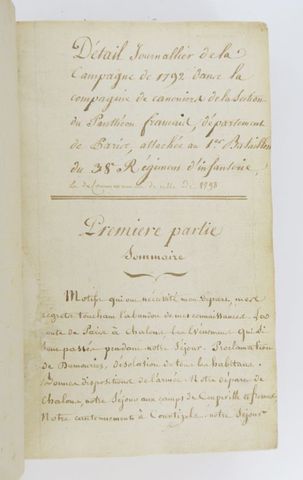 Détail Journallier de la
Campagne de 1792 dans la
compagnie de canoniers de la Section
du Panthéon français, département
de Paris, attachée au 1er Bataillon
du 38e Régiment d'infanterie,
de 1793
Premiere partie
Sommaire
Motifs qui ont necessité mon départ, mes
régrets touchant l'abandon de mes connaissances.
route de Paris à Chalons les Evénement qui se
sont passés pendant notre Séjour. Proclamation
de Dumourier, désolation de tous les habitans.
bonnes dispositions de l'armée Notre départ de
Chalons, notre Séjour aux camps de
Notre cantonnement à Courtisols notre Séjour